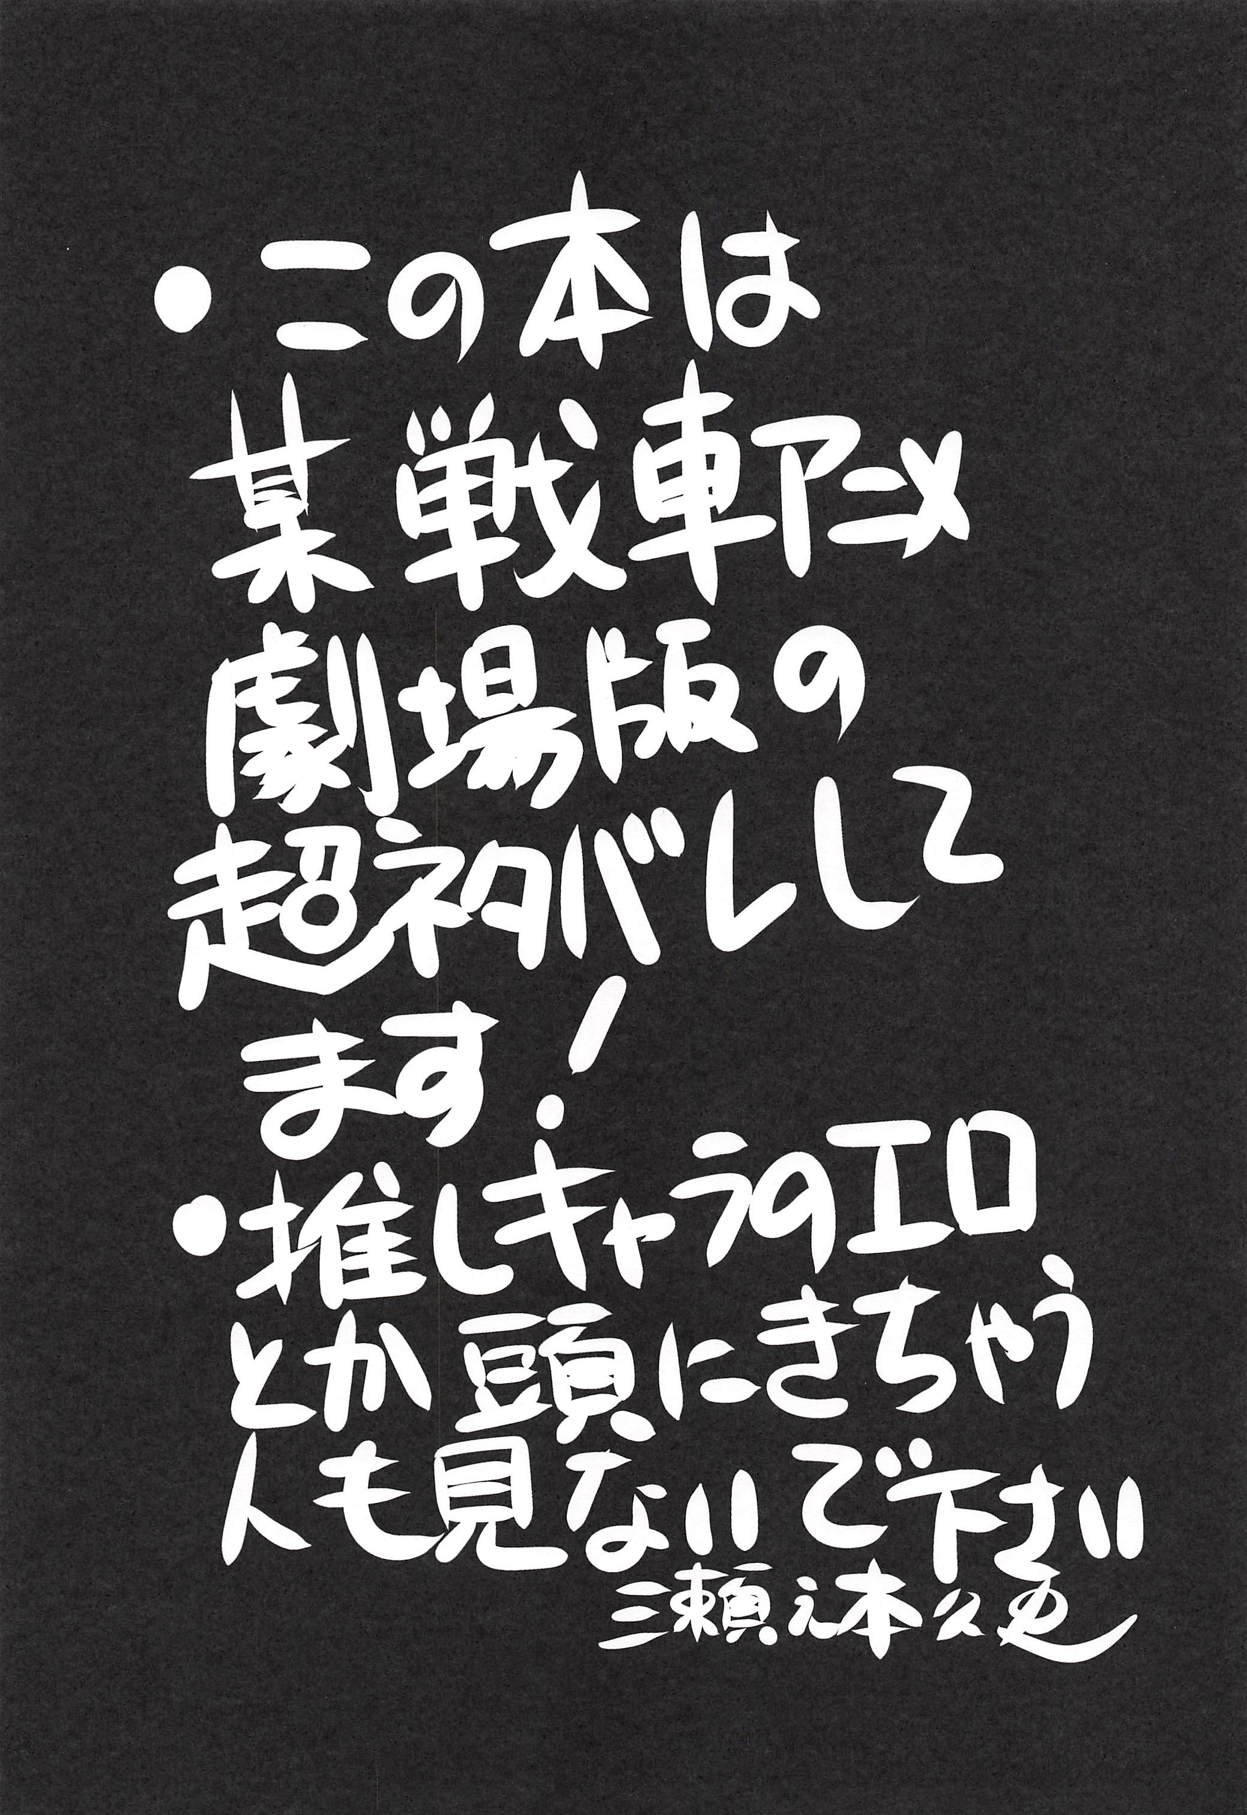 ●この本は
某戦車アニメ
劇場版の
超ネタバレして
ます!
●推しキャラのエロ
とか頭にきちゃう
人も見ないで下さい
三瀬之本久史